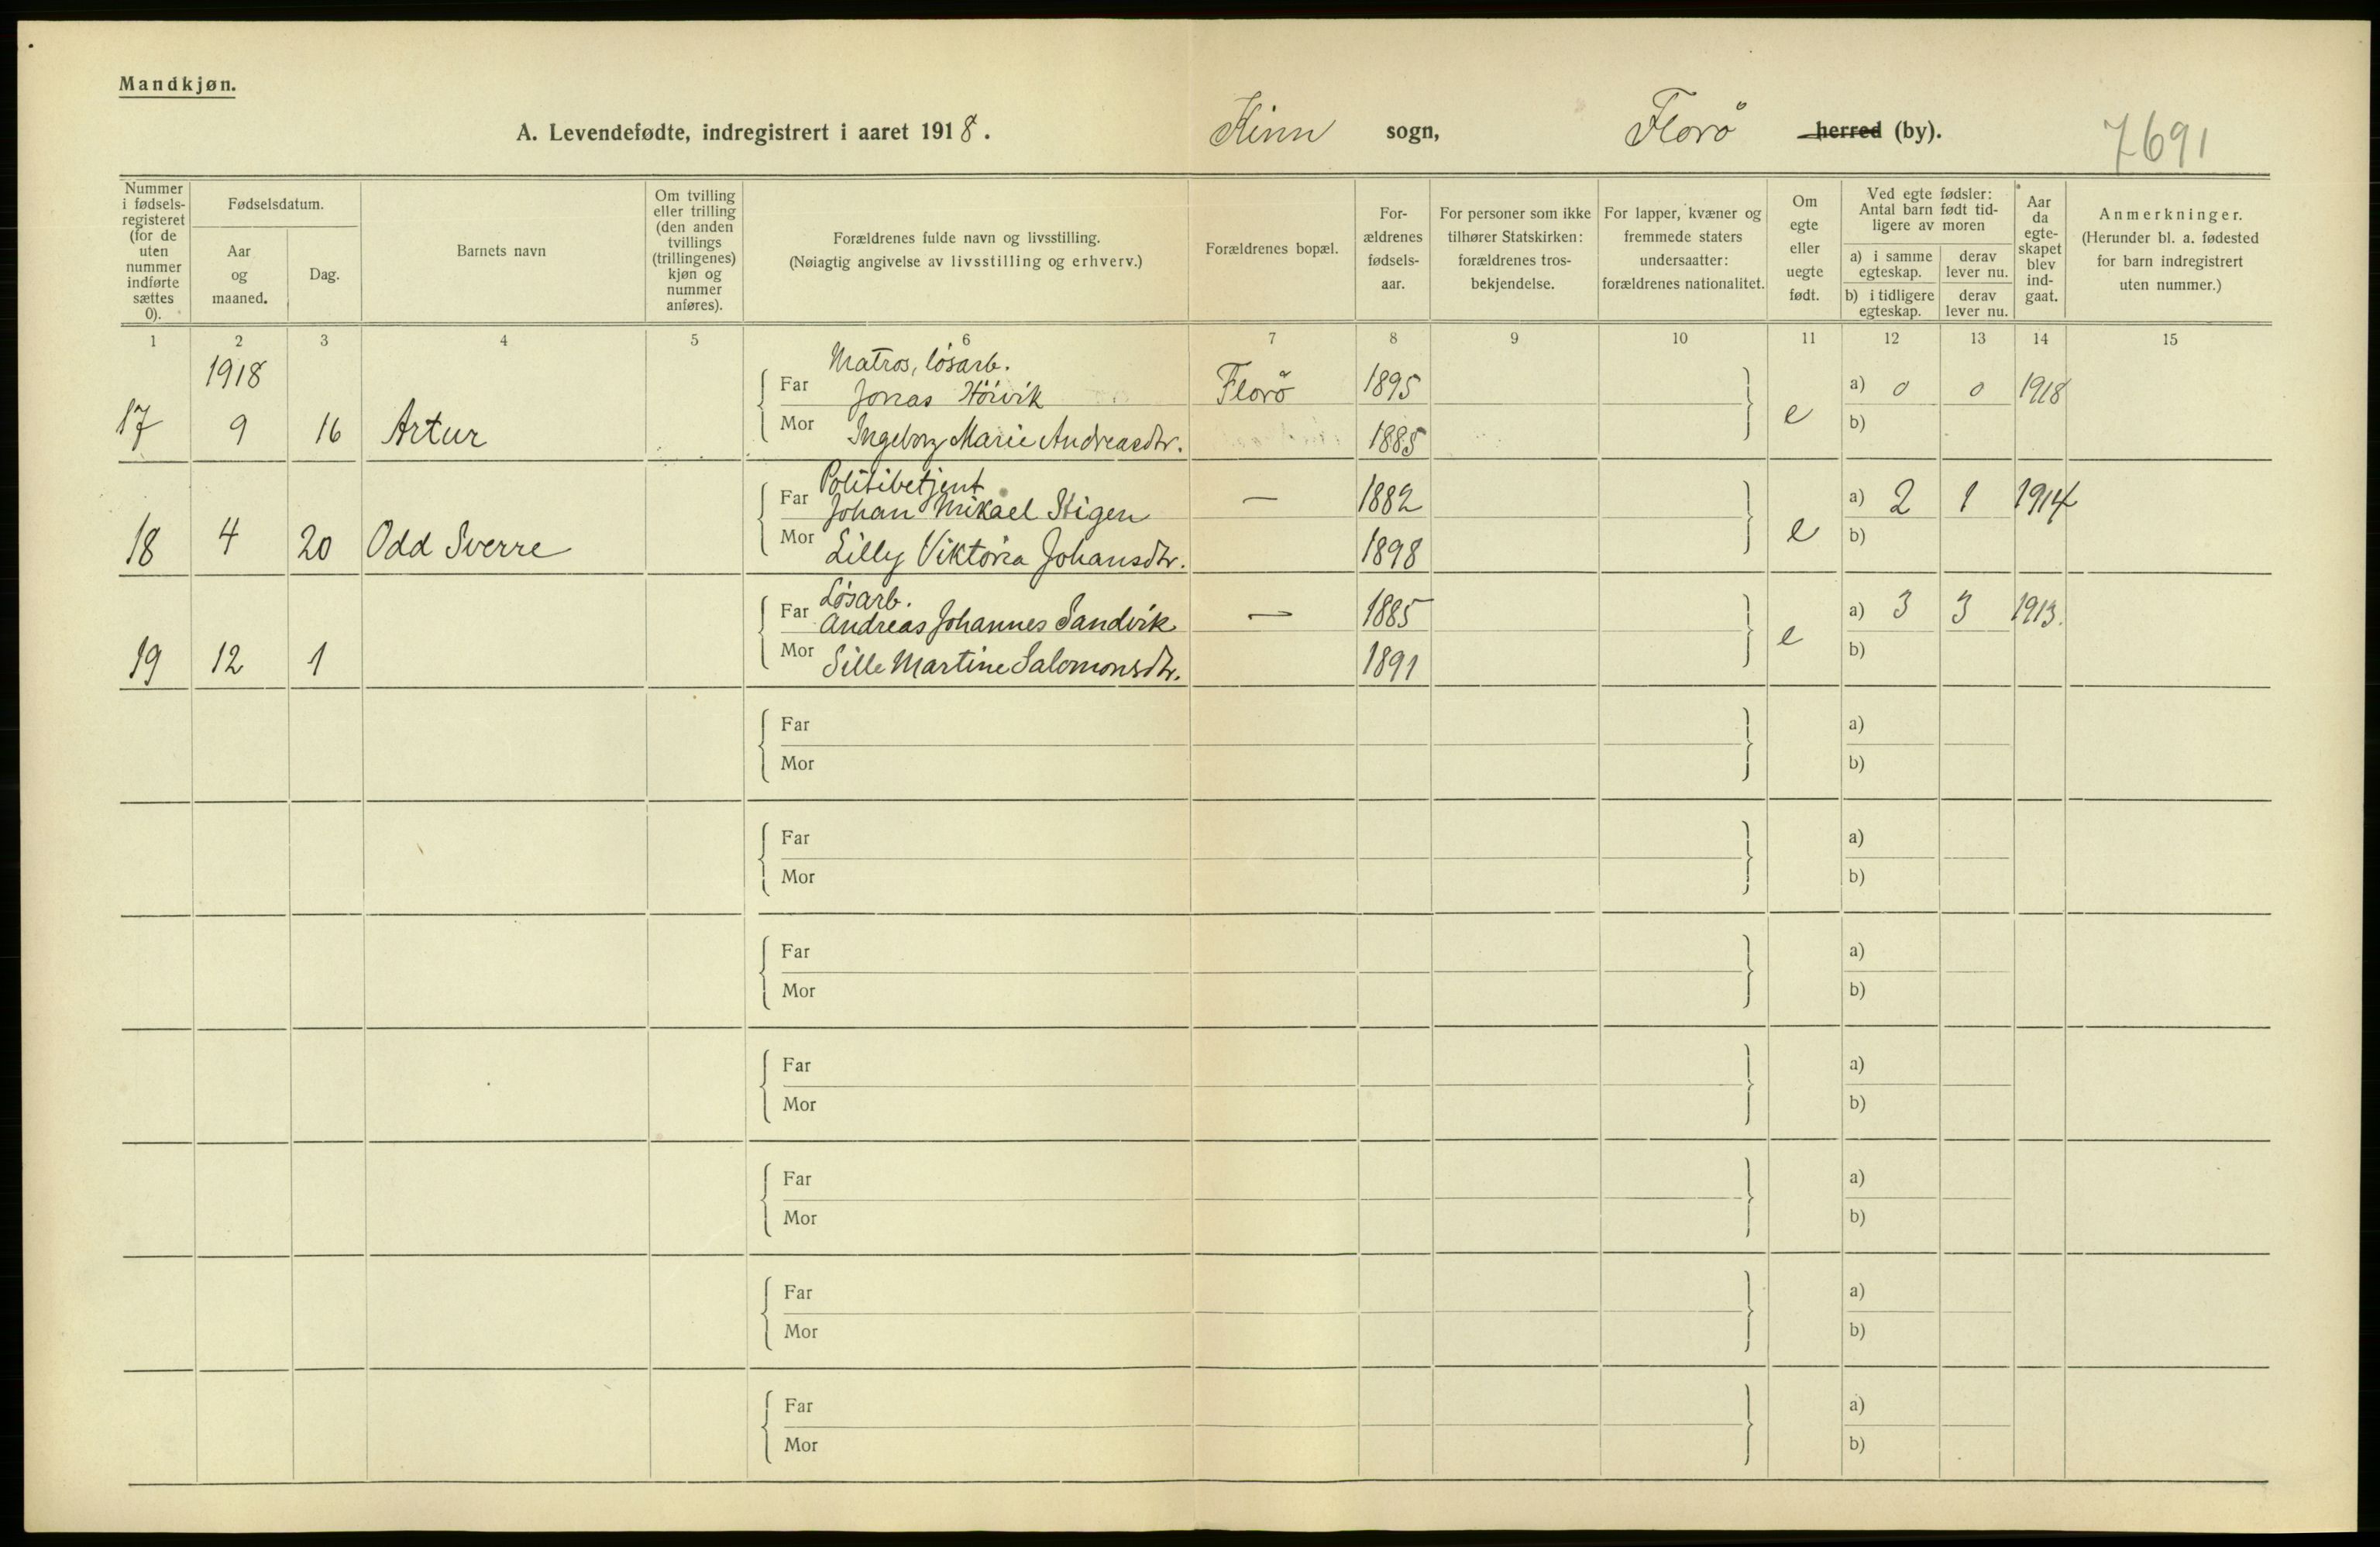 Mandkjøn.
A. Levendefødte, indregistrert i aaret 1918. Kinn sogn, Florö herred (by). 7691
Nummer i fødsels-registeret (for de uten nummer indførte sættes 0).
Fødselsdatum.
Aar og maaned.
Dag.
Barnets navn
Om tvilling eller trilling (den anden tvillings (trillingenes) kjøn og nummer anføres).
Forældrenes fulde navn og livsstilling.
(Nøiagtig angivelse av livsstilling og erhverv.)
Forældrenes bopæl.
For-ældrenes fødsels-aar.
For personer som ikke tilhører Statskirken: forældrenes tros-bekjendelse.
For lapper, kvæner og fremmede staters undersaatter: forældrenes nationalitet.
Om egte eller uegte født.
Ved egte fødsler: Antal barn født tid-ligere av moren
a) i samme egteskap.
derav lever nu.
b) i tidligere egteskap.
derav lever nu.
Aar da egte-skapet blev ind-gaat.
Anmerkninger.
(Herunder bl. a. fødested for barn indregistrert uten nummer.)
1 2 3 4 5 6 7 8 9 10 11 12 13 14 15
1918 Matros, lösarb.
Far Jonas Florö 1895 a) 0 0 1918
17 9 16 Artur Mor Ingeborg Marie Andreasdtr. 1885 e b)
Politibetjent
Far Johan Mikael Stigen — 1882 a) 2 1 1914
18 4 20 Odd Sverre Mor Lilly Viktoria Johansdtr. 1898 e b)
Lösarb.
Far Andreas Johannes Sandvik — 1885 a) 3 3 1913.
19 12 1 Mor Sille Martine Salomonsdtr. 1891 e b)
Far a)
Mor b)
Far a)
Mor b)
Far a)
Mor b)
Far a)
Mor b)
Far a)
Mor b)
Far a)
Mor b)
Far a)
Mor b)